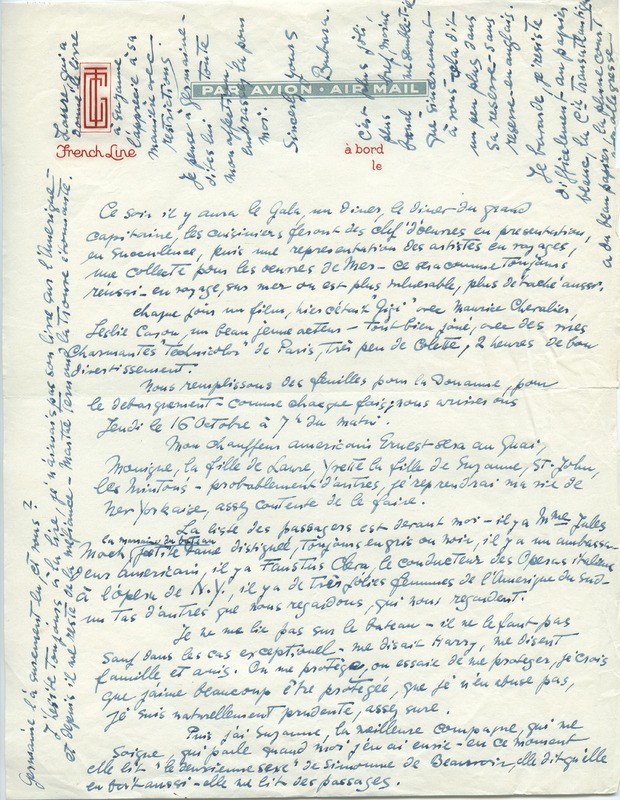 CGT
French Line
PAR AVION · AIR MAIL
à bord
le
Ce soir il y aura le Gala, un diner, le diner du grand
capitaine, les cuisiniers feront des clef d'oeuvres en présentation,
en succulence, puis une representation des artistes en voyages,
une collecte pour les oeuvres de Mer - ce sera comme toujours
réussi - en voyage, sur mer on est plus vulnerable, plus detaché aussi.
chaque jour un films, hier c'était "Gigi" avec Maurice Chevalier,
Leslie Caron, un beau jeune acteur - tout bien joué, avec des vues
Charmantes "Technicolor" de Paris, très peu de Colette, 2 heures de bon
divertissement.
Nous remplissons des feuilles pour la Douanne, pour
le debarquement - comme chaque fois, nous arriverons
Jeudi le 16 Octobre à 7h du matin.
Mon chauffeur americain Ernest sera au Quai,
Monique, la fille de Laure, Yvette la fille de Suzanne, St. John,
les Mintons - probablement d'autres, je reprendrai ma vie de
New Yorkaise, assez contente de le faire.
La liste des passagers est devant moi - il y a Mme Jules
Moch, petite Dame distiguée, toujours en gris ou noir, il y a un ambassa-
deur americain, il y a Faustus Cleva, le conducteur des Operas italiens
à l'Opera de N.Y., il y a de très jolies femmes de l'Amerique du Sud -
un tas d'autres que nous regardons, qui nous regardent.
Je ne me lie pas sur le bateau - il ne le faut pas
sauf dans les cas exceptionel - me disait Harry, me disent
famille et amis. On me protège, on essaie de me proteger, je crois
que j'aime beaucoup être protégée, que je n'en abuse pas,
je suis naturellement prudente, assez sure.
Puis j'ai Suzanne, la meilleure compagne, qui me
soigne, qui parle quand moi j'en ai envie - en ce moment
elle lit "le deuxieme sexe" de Simonne de Beauvoir, elle dit qu'elle
en sort aussi - elle me lit des passages.
Germaine l'a surement lu, et vous?
J'hesite toujours à la lire, je n'aimais pas son livre sur l'Amerique -
et depuis il me reste de la mefiance - Marthe Fernand la trouve étonnante.
Laure qui a
donné le livre
à Suzanne
l'apprecie à sa
manière avec
restrictions.
Je pense à Germaine -
dites lui toute
mon affection,
embrassez la pour
moi.
Sincerely yours
C'est plus joli,
plus bref moins
banal il me semble
que sincerement
à vous - cela dit
un peu plus dans
sa reserve - sans
reserve en anglais.
Je bavarde, je resiste
difficilement - au papier
blanc, la Cie transatlantique
a du beau papier, la plume court